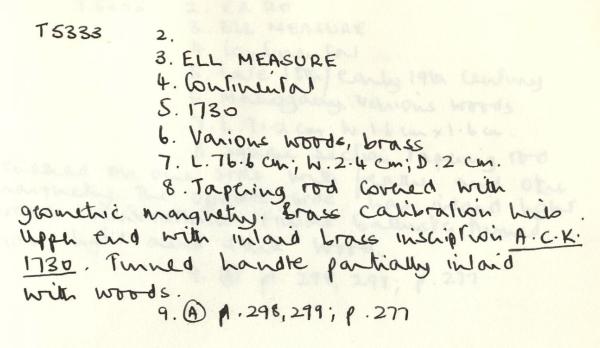 T5333 2.
3. ELL MEASURE
4. Continental
5. 1730
6. Various woods, brass
7. L. 76.6 cm; W. 2.4 cm; D. 2 cm.
8. Tapering rod covered with
geometric marquetry. Brass calibration
Upper end with inlaid brass inscription A.C.K.
1730. Turned handle partially inlaid
with woods.
9. Ⓐ p. 298, 299; p. 277